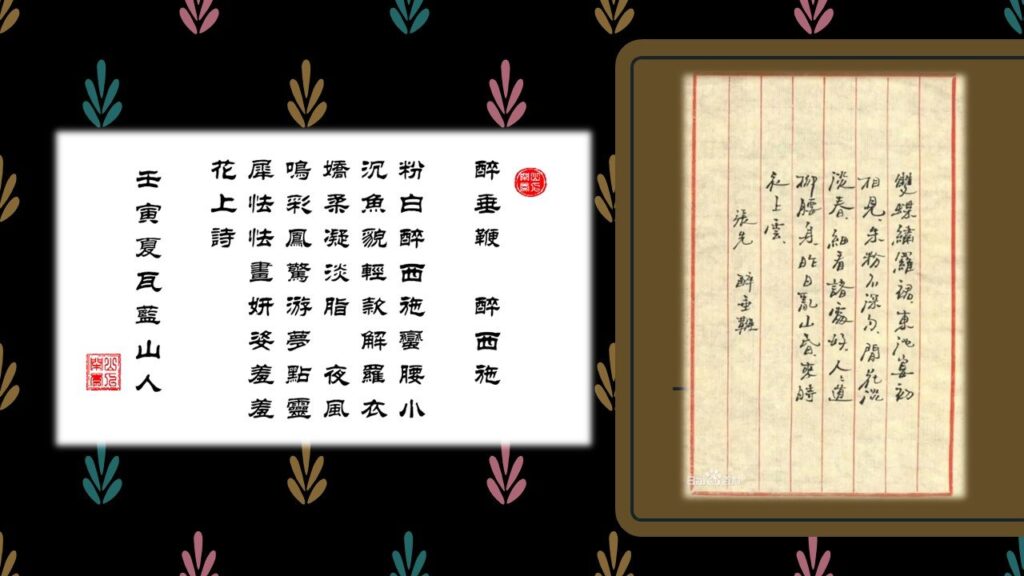 醉垂鞭　醉西施
粉白醉西施蠻腰小
沉魚貌輕款解羅衣
嬌柔凝淡脂　夜風
鳴彩鳳驚游夢點靈
犀怯怯畫妍姿羞羞
花上詩
壬寅夏瓦藍山人
雙蝶繡羅裙東池宴初
相見朱粉不深勻閒花淡
淡春細看諸處好人々道
柳腰身昨日亂山昏來時
衣上雲
張先　醉垂鞭